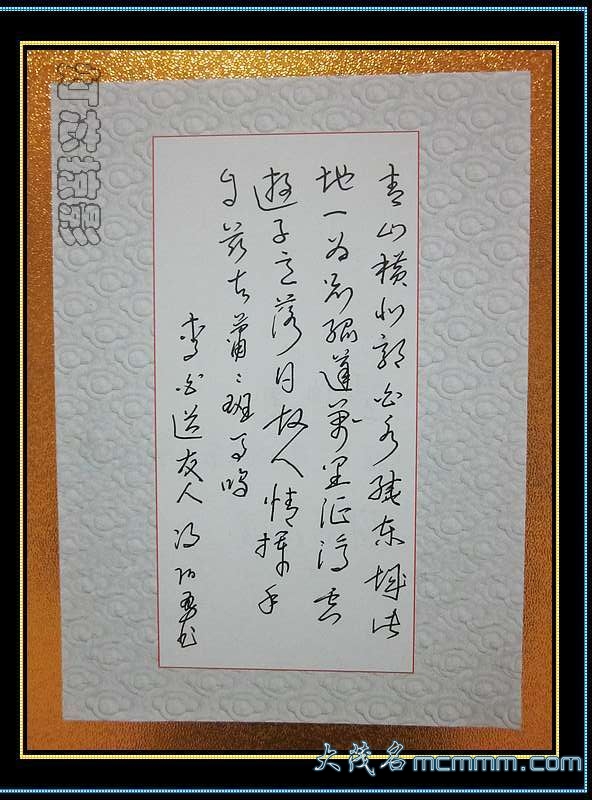 青山横北郭白水绕东城此
地一为别孤蓬万里征浮云
游子意落日故人情挥手
自兹去萧々班马鸣
李白送友人冯
灯芯摄影
大茂名mcmmm.com